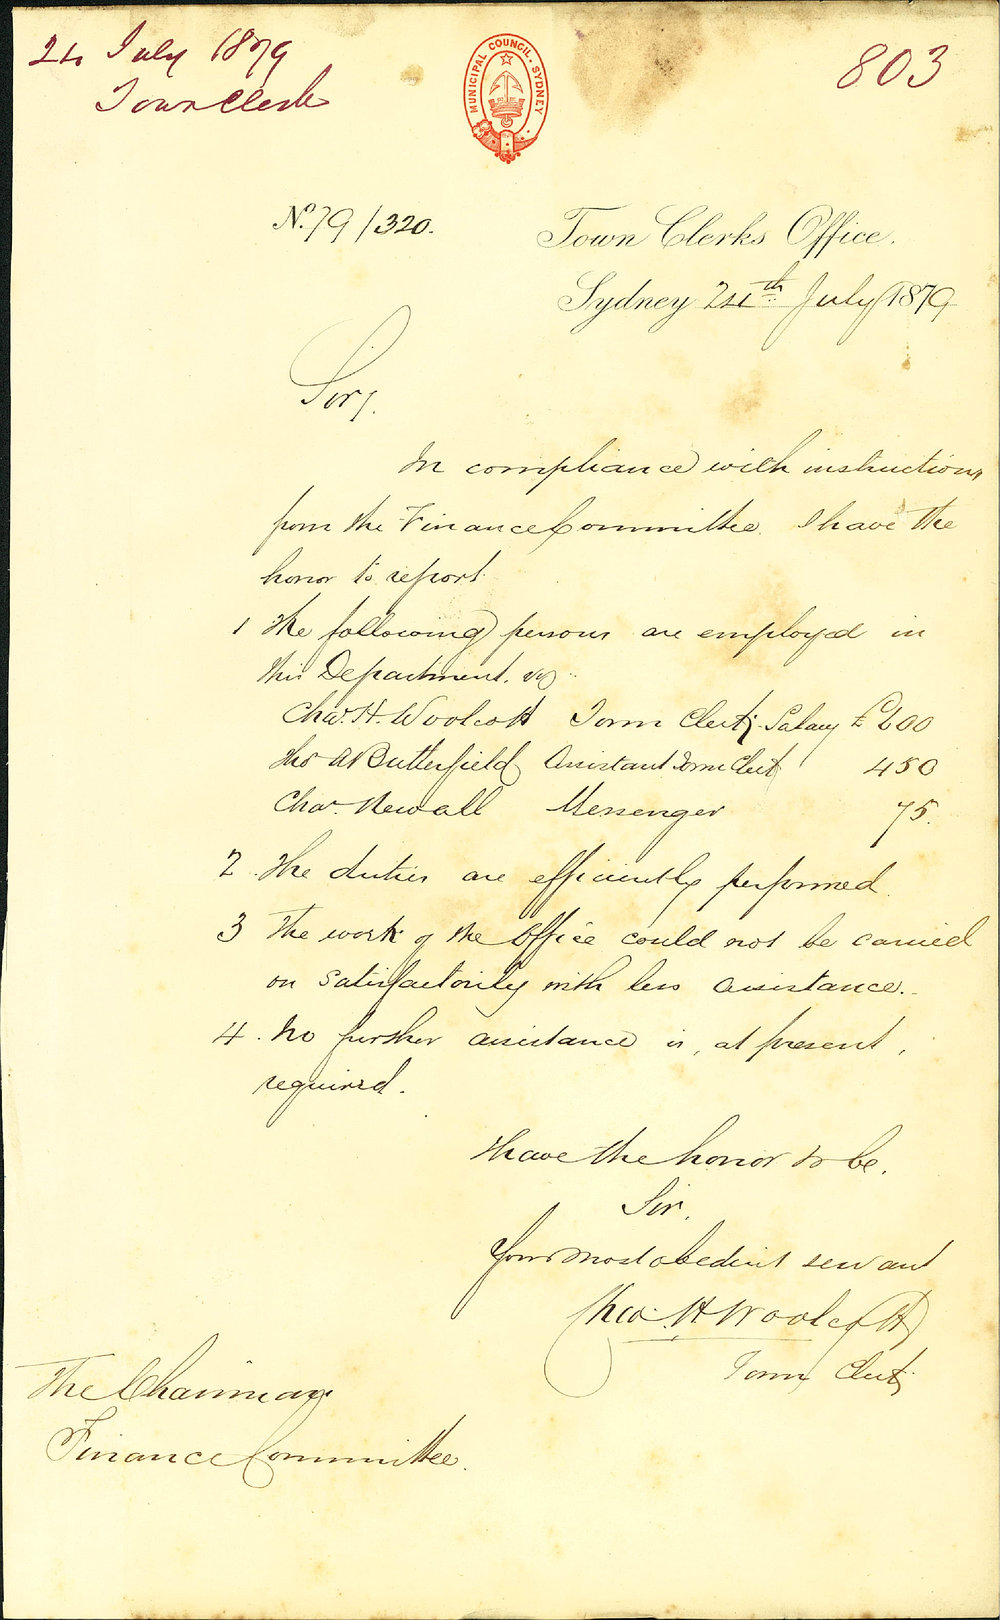 24 July 1879
Town Clerk
803
MUNICIPAL COUNCIL · SYDNEY
No. 79/320.
Town Clerks Office.
Sydney 24th July 1879
Sir,
In compliance with instructions
from the Finance Committee. I have the
honor to report
1 The following persons are employed in
this Department. viz
Chas. H. Woolcott Town Clerk, Salary £ 600
Thos A Butterfield Assistant Town Clerk 450
Chas. Newall Messenger 75.
2. The duties are efficiently performed.
3 The work of the Office could not be carried
on satisfactorily with less assistance.
4. No further assistance is, at present,
required.
I have the honor to be.
Sir.
Your most obedient servant
Chas. H Woolcott
Town Clerk
The Chairman
Finance Committee.